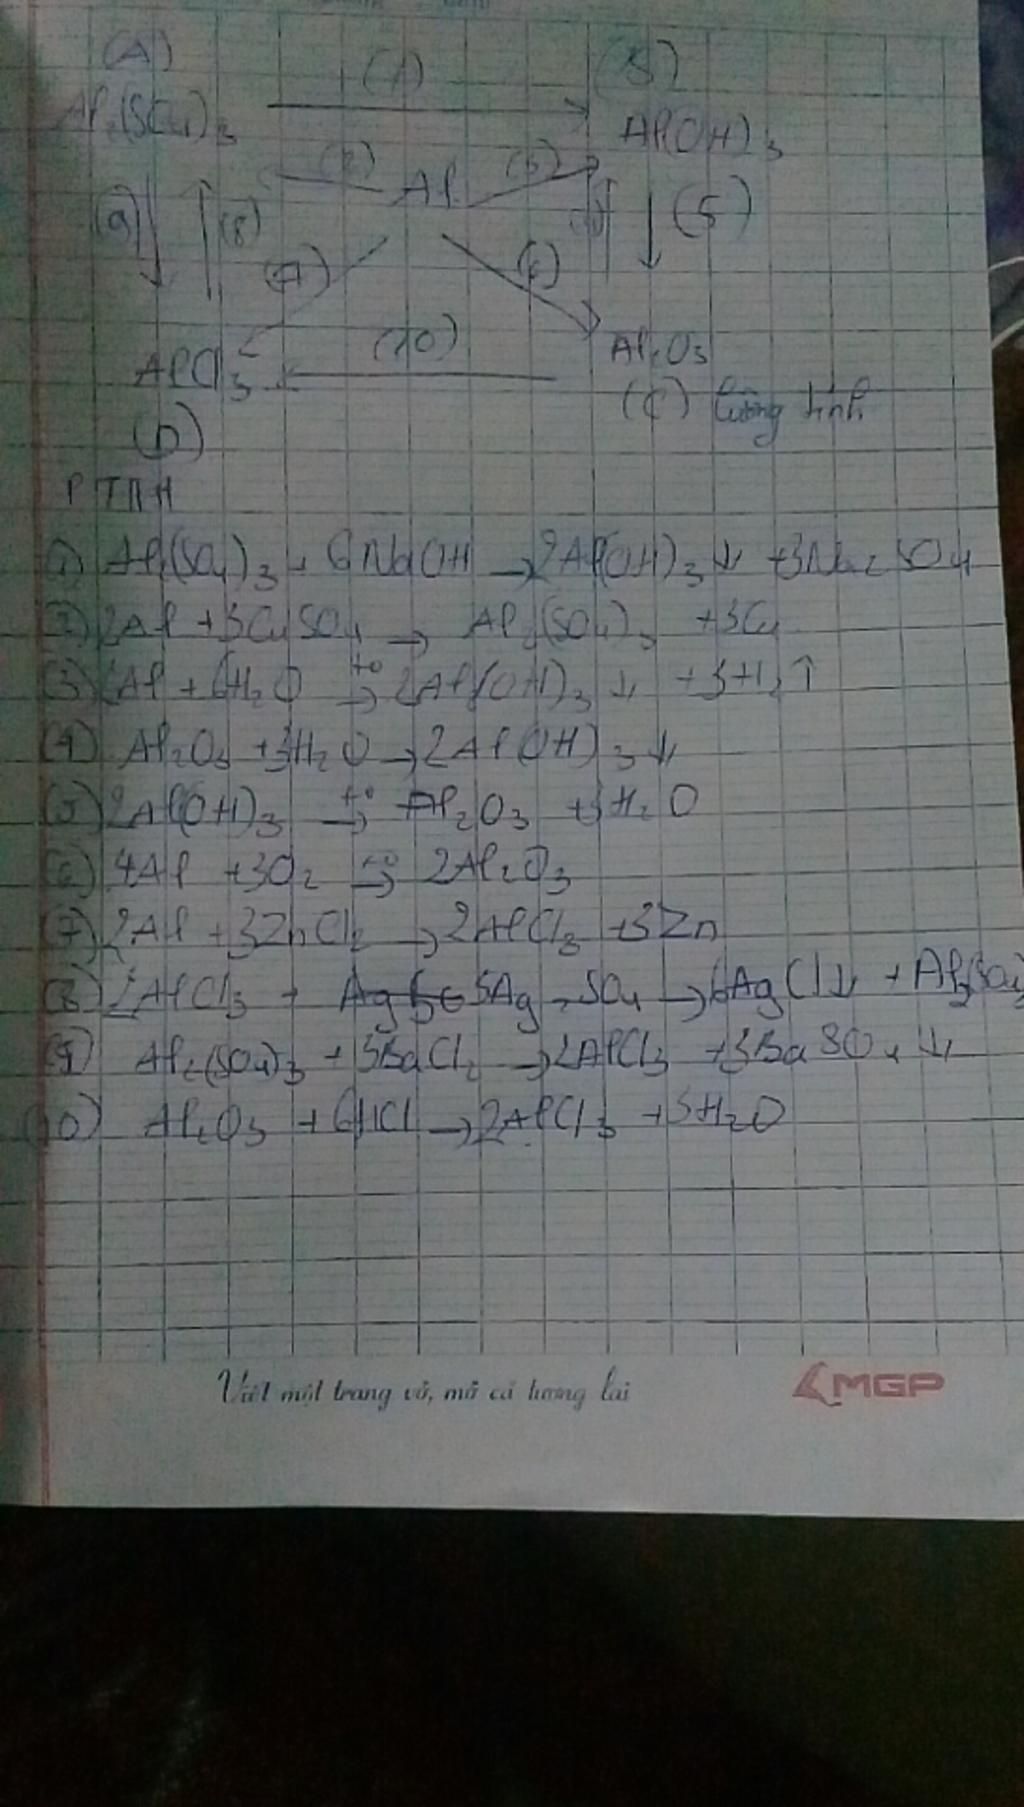 (A) (1) (B)
Al₂(SO₄)₃ Al(OH)₃
(2) Al (3)
(9) (8) (4) (5)
(7) (6)
AlCl₃ (10) Al₂O₃
(D) (C) lưỡng tính
PTHH
(1) Al₂(SO₄)₃ + 6NaOH → 2Al(OH)₃↓ + 3Na₂SO₄
(2) 2Al + 3CuSO₄ → Al₂(SO₄)₃ + 3Cu
(3) 2Al + 6H₂O t°→ 2Al(OH)₃↓ + 3H₂↑
(4) Al₂O₃ + 3H₂O → 2Al(OH)₃↓
(5) 2Al(OH)₃ t°→ Al₂O₃ + 3H₂O
(6) 4Al + 3O₂ t°→ 2Al₂O₃
(7) 2Al + 3ZnCl₂ → 2AlCl₃ + 3Zn
(8) 2AlCl₃ + 3Ag₂SO₄ → 6AgCl↓ + Al₂(SO₄)
(9) Al₂(SO₄)₃ + 3BaCl₂ → 2AlCl₃ + 3BaSO₄↓
(10) Al₂O₃ + 6HCl → 2AlCl₃ + 3H₂O
Viết một trang vở, mở cả tương lai MGP